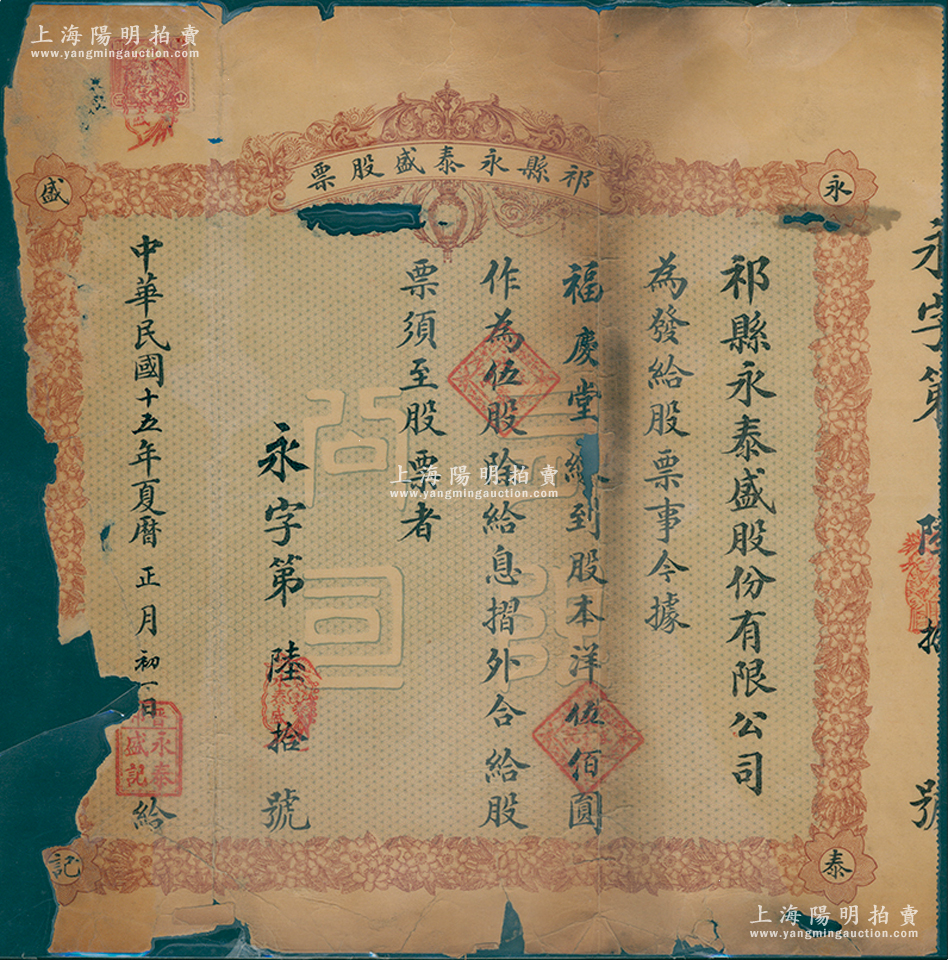 上海陽明拍賣
www.yangmingauction.com
祁縣永泰盛股票
永
泰
盛
記
祁縣永泰盛股份有限公司
為發給股票事今據
福慶堂繳到股本洋伍佰圓
作為伍股除給息摺外合給股
票須至股票者
永字第陸拾號
中華民國十五年夏曆正月初一日給
晉永泰
盛記
永字第陸拾號
上海陽明拍賣
www.yangmingauction.com
上海陽明拍賣
www.yangmingauction.com